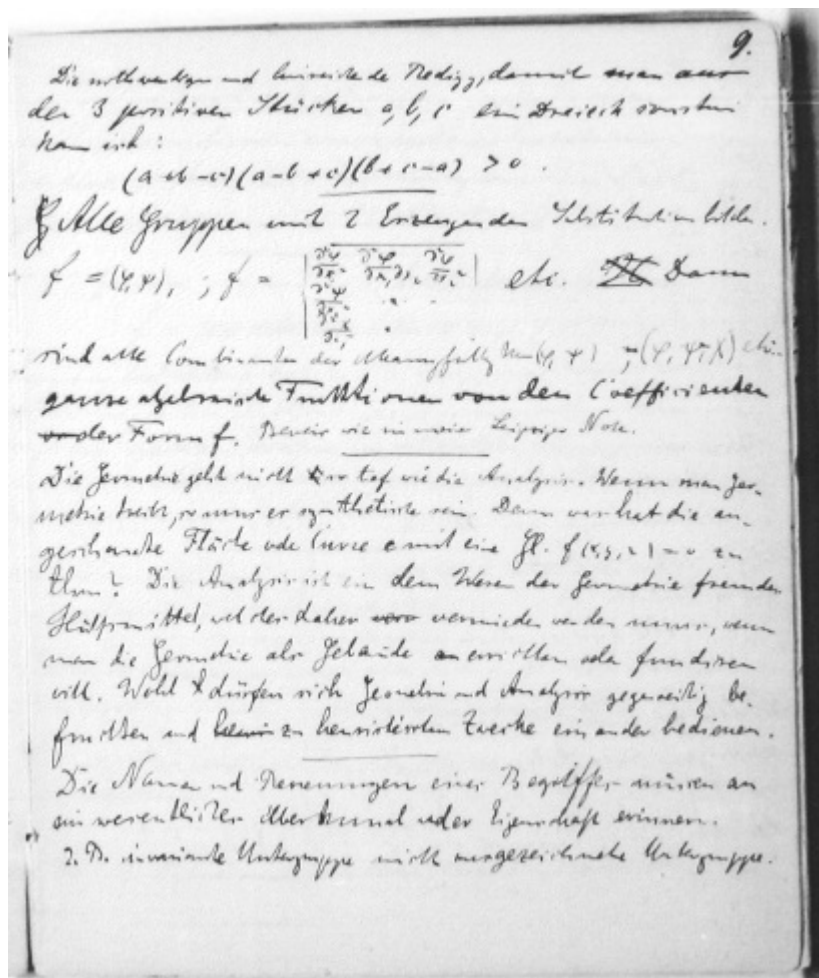 9.
Die nothwendigen und hinreichende Bedigg, damit man aus
den 3 positiven Stücken a, b, c ein Dreieck
kann ist:
(a+b-c)(a-b+c)(b+c-a) > 0.
Alle Gruppen mit 2 Erzeugenden Substitutionen bilden.
f = (φ, ψ), ; f = etc. Dann
sind alle Combinanten der (φ, ψ) (φ, ψ, χ) etc.
ganze algebraische Funktionen von den Coefficienten
der Form f. Beweis wie in meiner Leipziger Note.
Die Geometrie geht nicht so tief wie die Analysis. Wenn man Geo-
metrie treibt, so muss er synthetisch sein. Denn was hat die an-
geschaute Fläche oder Curve mit eine Gl. f(x,y,z)=0 zu
thun? Die Analysis ist ein dem Wesen der Geometrie fremdes
Hülfsmittel, welches daher vermieden werden muss, wenn
man die Geometrie als Gebäude errichten oder fundiren
will. Wohl dürfen sich Geometrie und Analysis gegenseitig be-
fruchten und zu heuristischen Zwecke einander bedienen.
Die Namen und Benennungen eines Begriffes müssen an
ein wesentliches Merkmal oder Eigenschaft erinnern.
z. B. invariante Untergruppe nicht ausgezeichnete Untergruppe.